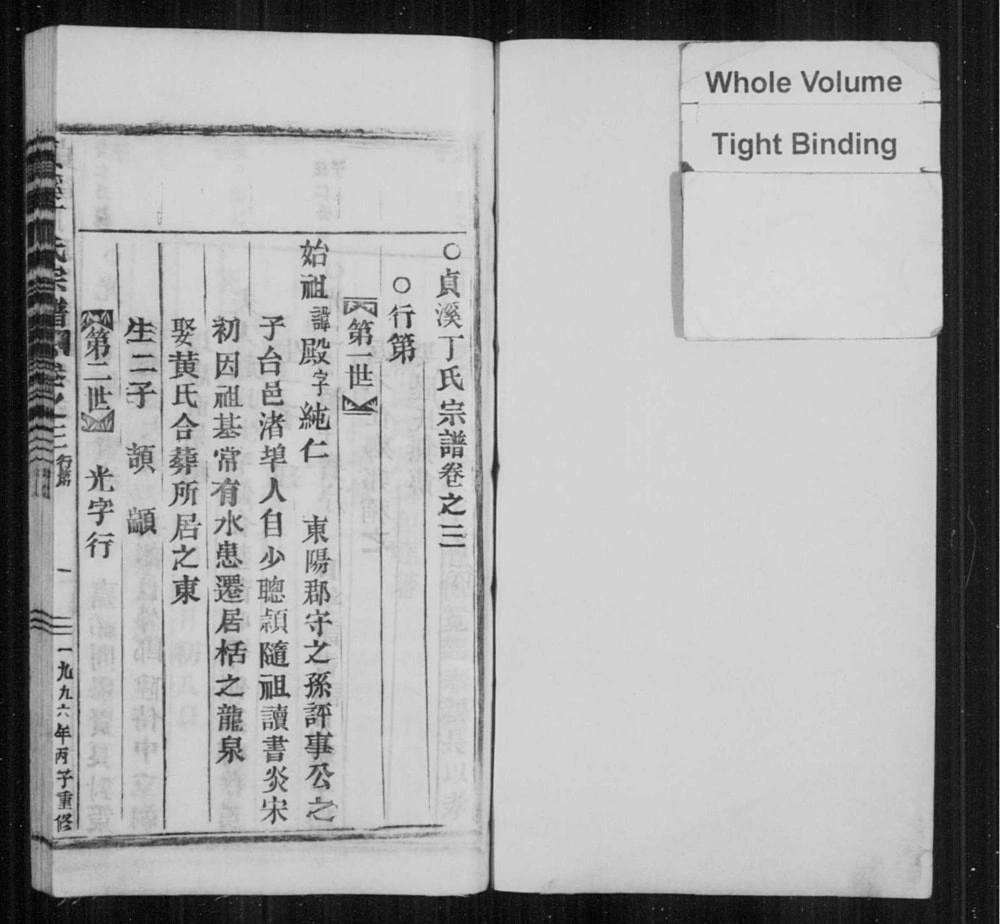 Whole Volume
Tight Binding
○貞溪丁氏宗譜卷之三
○行第
第一世
始祖諱殿字純仁 東陽郡守之孫評事公之
子台邑渚埠人自少聰頴隨祖讀書炎宋
初因祖基常有水患遷居栝之龍泉
娶黄氏合葬所居之東
生二子 頡 顓
第二世 光字行
氏宗譜 卷之三 行第 一 一九九六年丙子重修